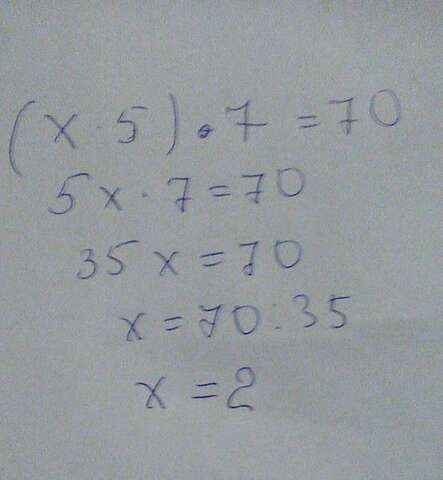 (x · 5) · 7 = 70
5x · 7 = 70
35x = 70
x = 70 : 35
x = 2